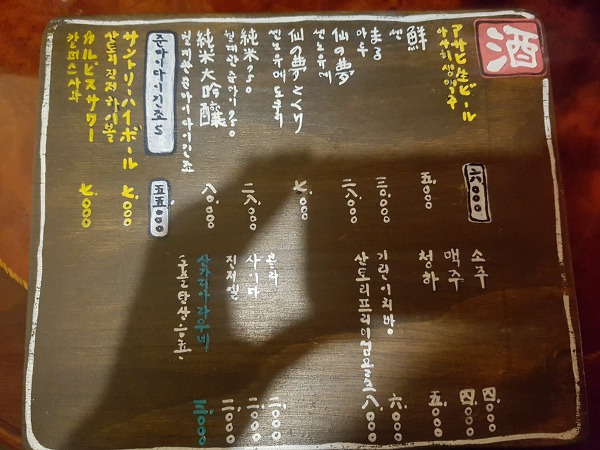 酒
アサヒ生ビール
아사히생맥주
六.000
鮮
선
五.000
仙の夢
센노유메
仙の夢とくり
센노유메도쿠리
七.000
純米
純米大吟醸
八.000
준마이다이긴죠 S
五五.000
サントリーハイボール
산토리진저하이볼
七.000
カルピスサワー
칼피스사와
七.000
소주 四.000
맥주 四.000
청하 五.000
기린이치방 六.000
산토리프리미엄몰츠 八.000
콜라 二.000
사이다 二.000
진저엘 二.000
산가리아 라무네 三.000
(구슬탄산음료)